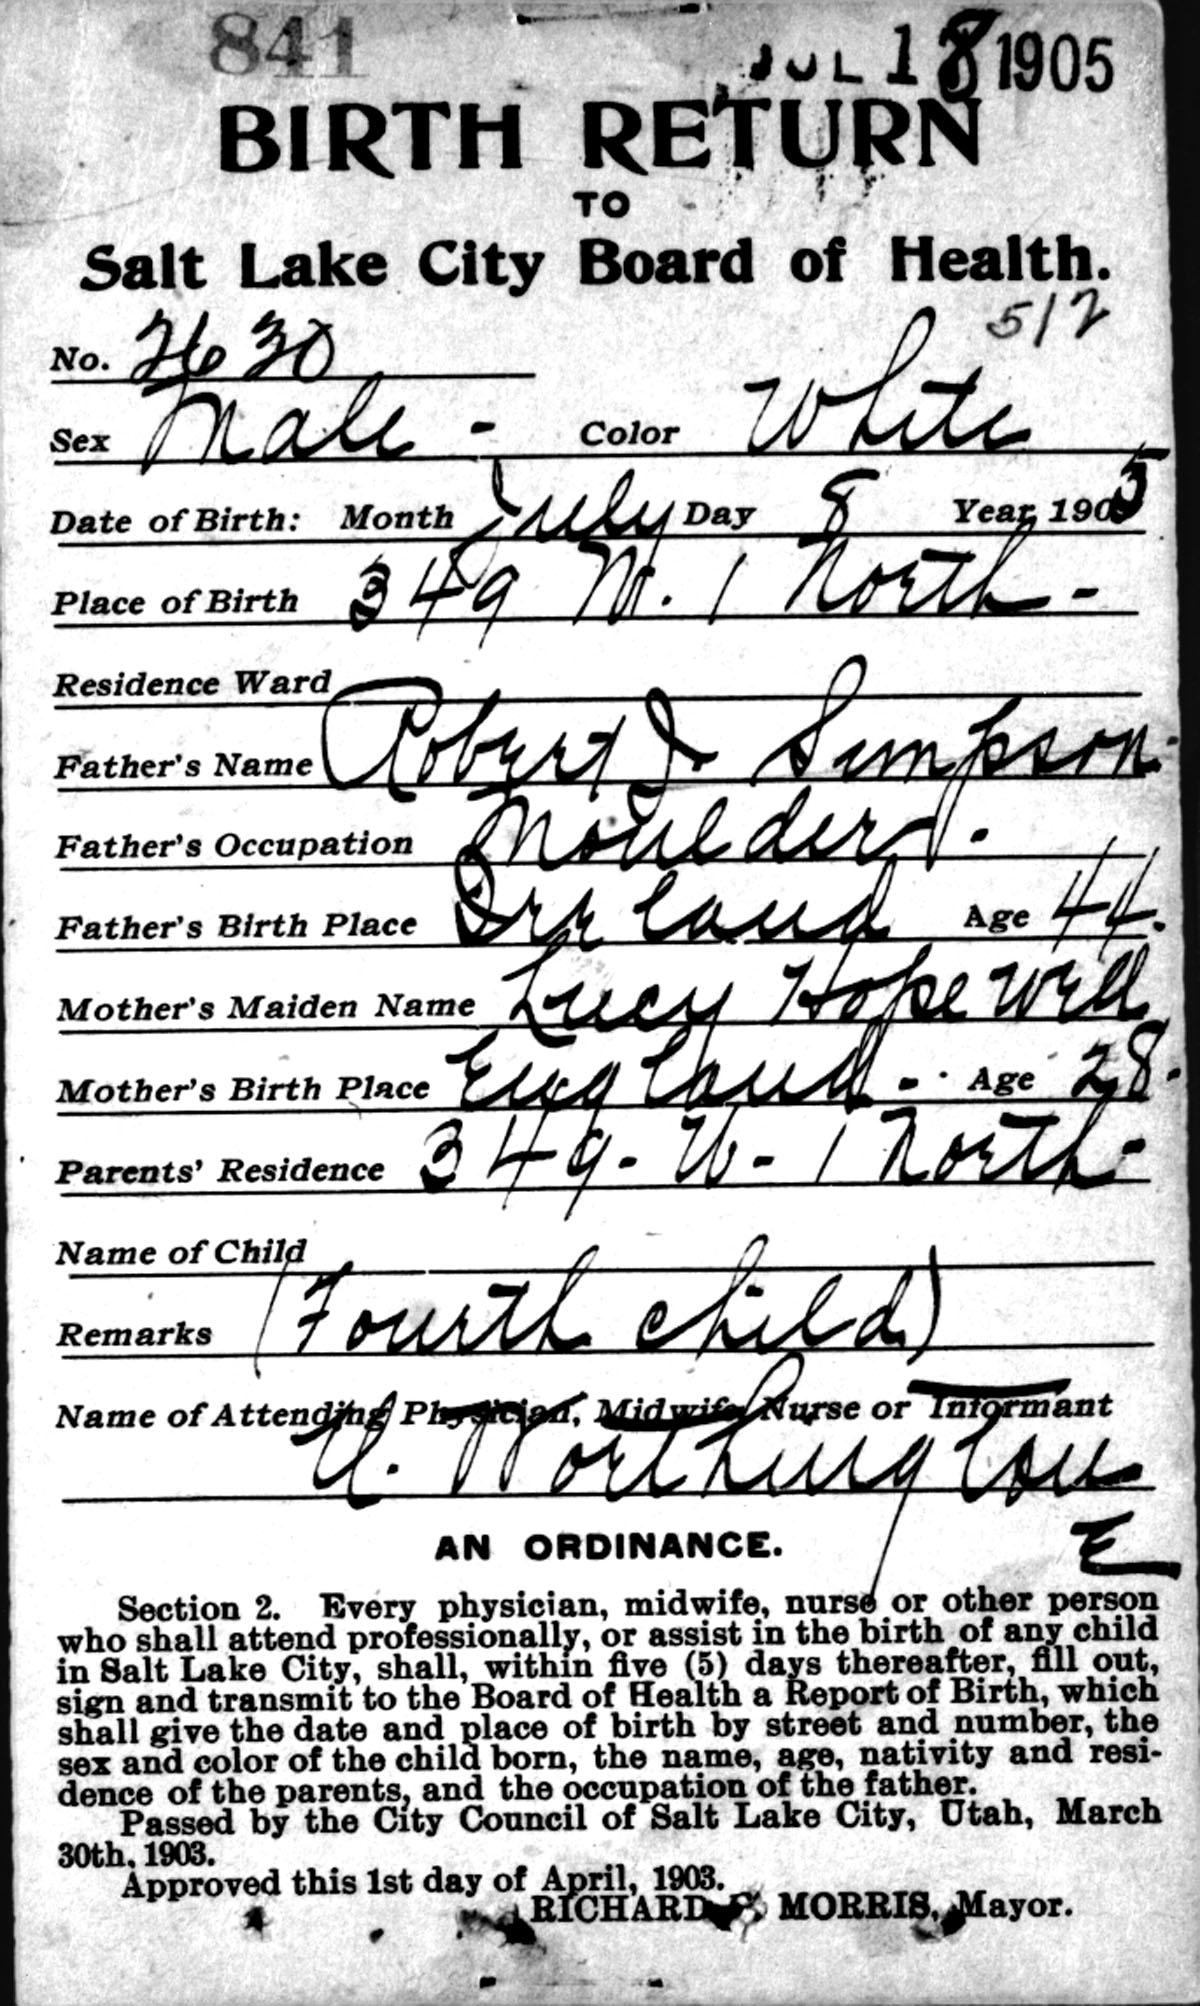 841 JUL 18 1905
BIRTH RETURN
TO
Salt Lake City Board of Health.
512
No. 2630
Sex Male - Color White
Date of Birth: Month July Day 8 Year 1905
Place of Birth 349 W. 1 North -
Residence Ward
Father's Name Robert J Simpson
Father's Occupation Moulder.
Father's Birth Place Ireland Age 44.
Mother's Maiden Name Lucy Hopewell
Mother's Birth Place England - Age 28.
Parents' Residence 349 - W - 1 North -
Name of Child
Remarks (Fourth child)
Name of Attending Physician, Midwife, Nurse or Informant
U. Worthington
E
AN ORDINANCE.
Section 2. Every physician, midwife, nurse or other person
who shall attend professionally, or assist in the birth of any child
in Salt Lake City, shall, within five (5) days thereafter, fill out,
sign and transmit to the Board of Health a Report of Birth, which
shall give the date and place of birth by street and number, the
sex and color of the child born, the name, age, nativity and resi-
dence of the parents, and the occupation of the father.
Passed by the City Council of Salt Lake City, Utah, March
30th, 1903.
Approved this 1st day of April, 1903.
RICHARD P. MORRIS, Mayor.